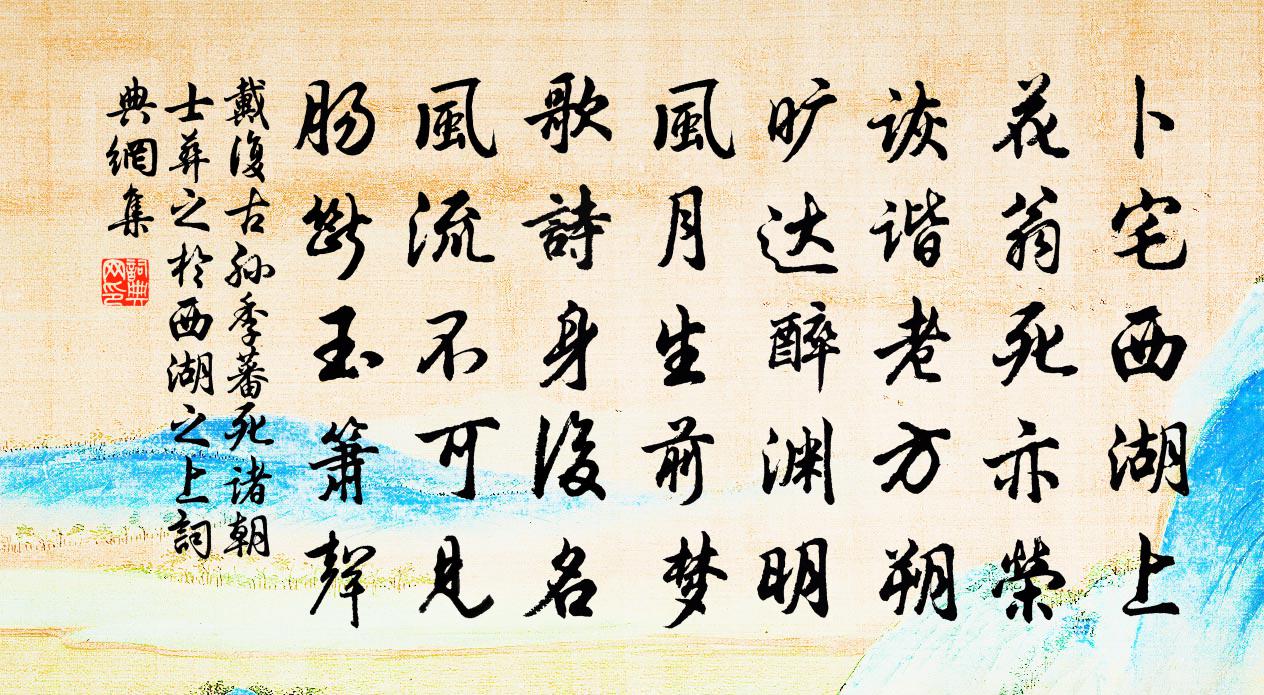 卜宅西湖上
花翁死亦榮
诙谐老方朔
旷达醉渊明
風月生前梦
歌詩身後名
風流不可見
肠斷玉簫聲
戴復古 孙季蕃死诸朝
士葬之於西湖之上 詞
典網集
詞典网印